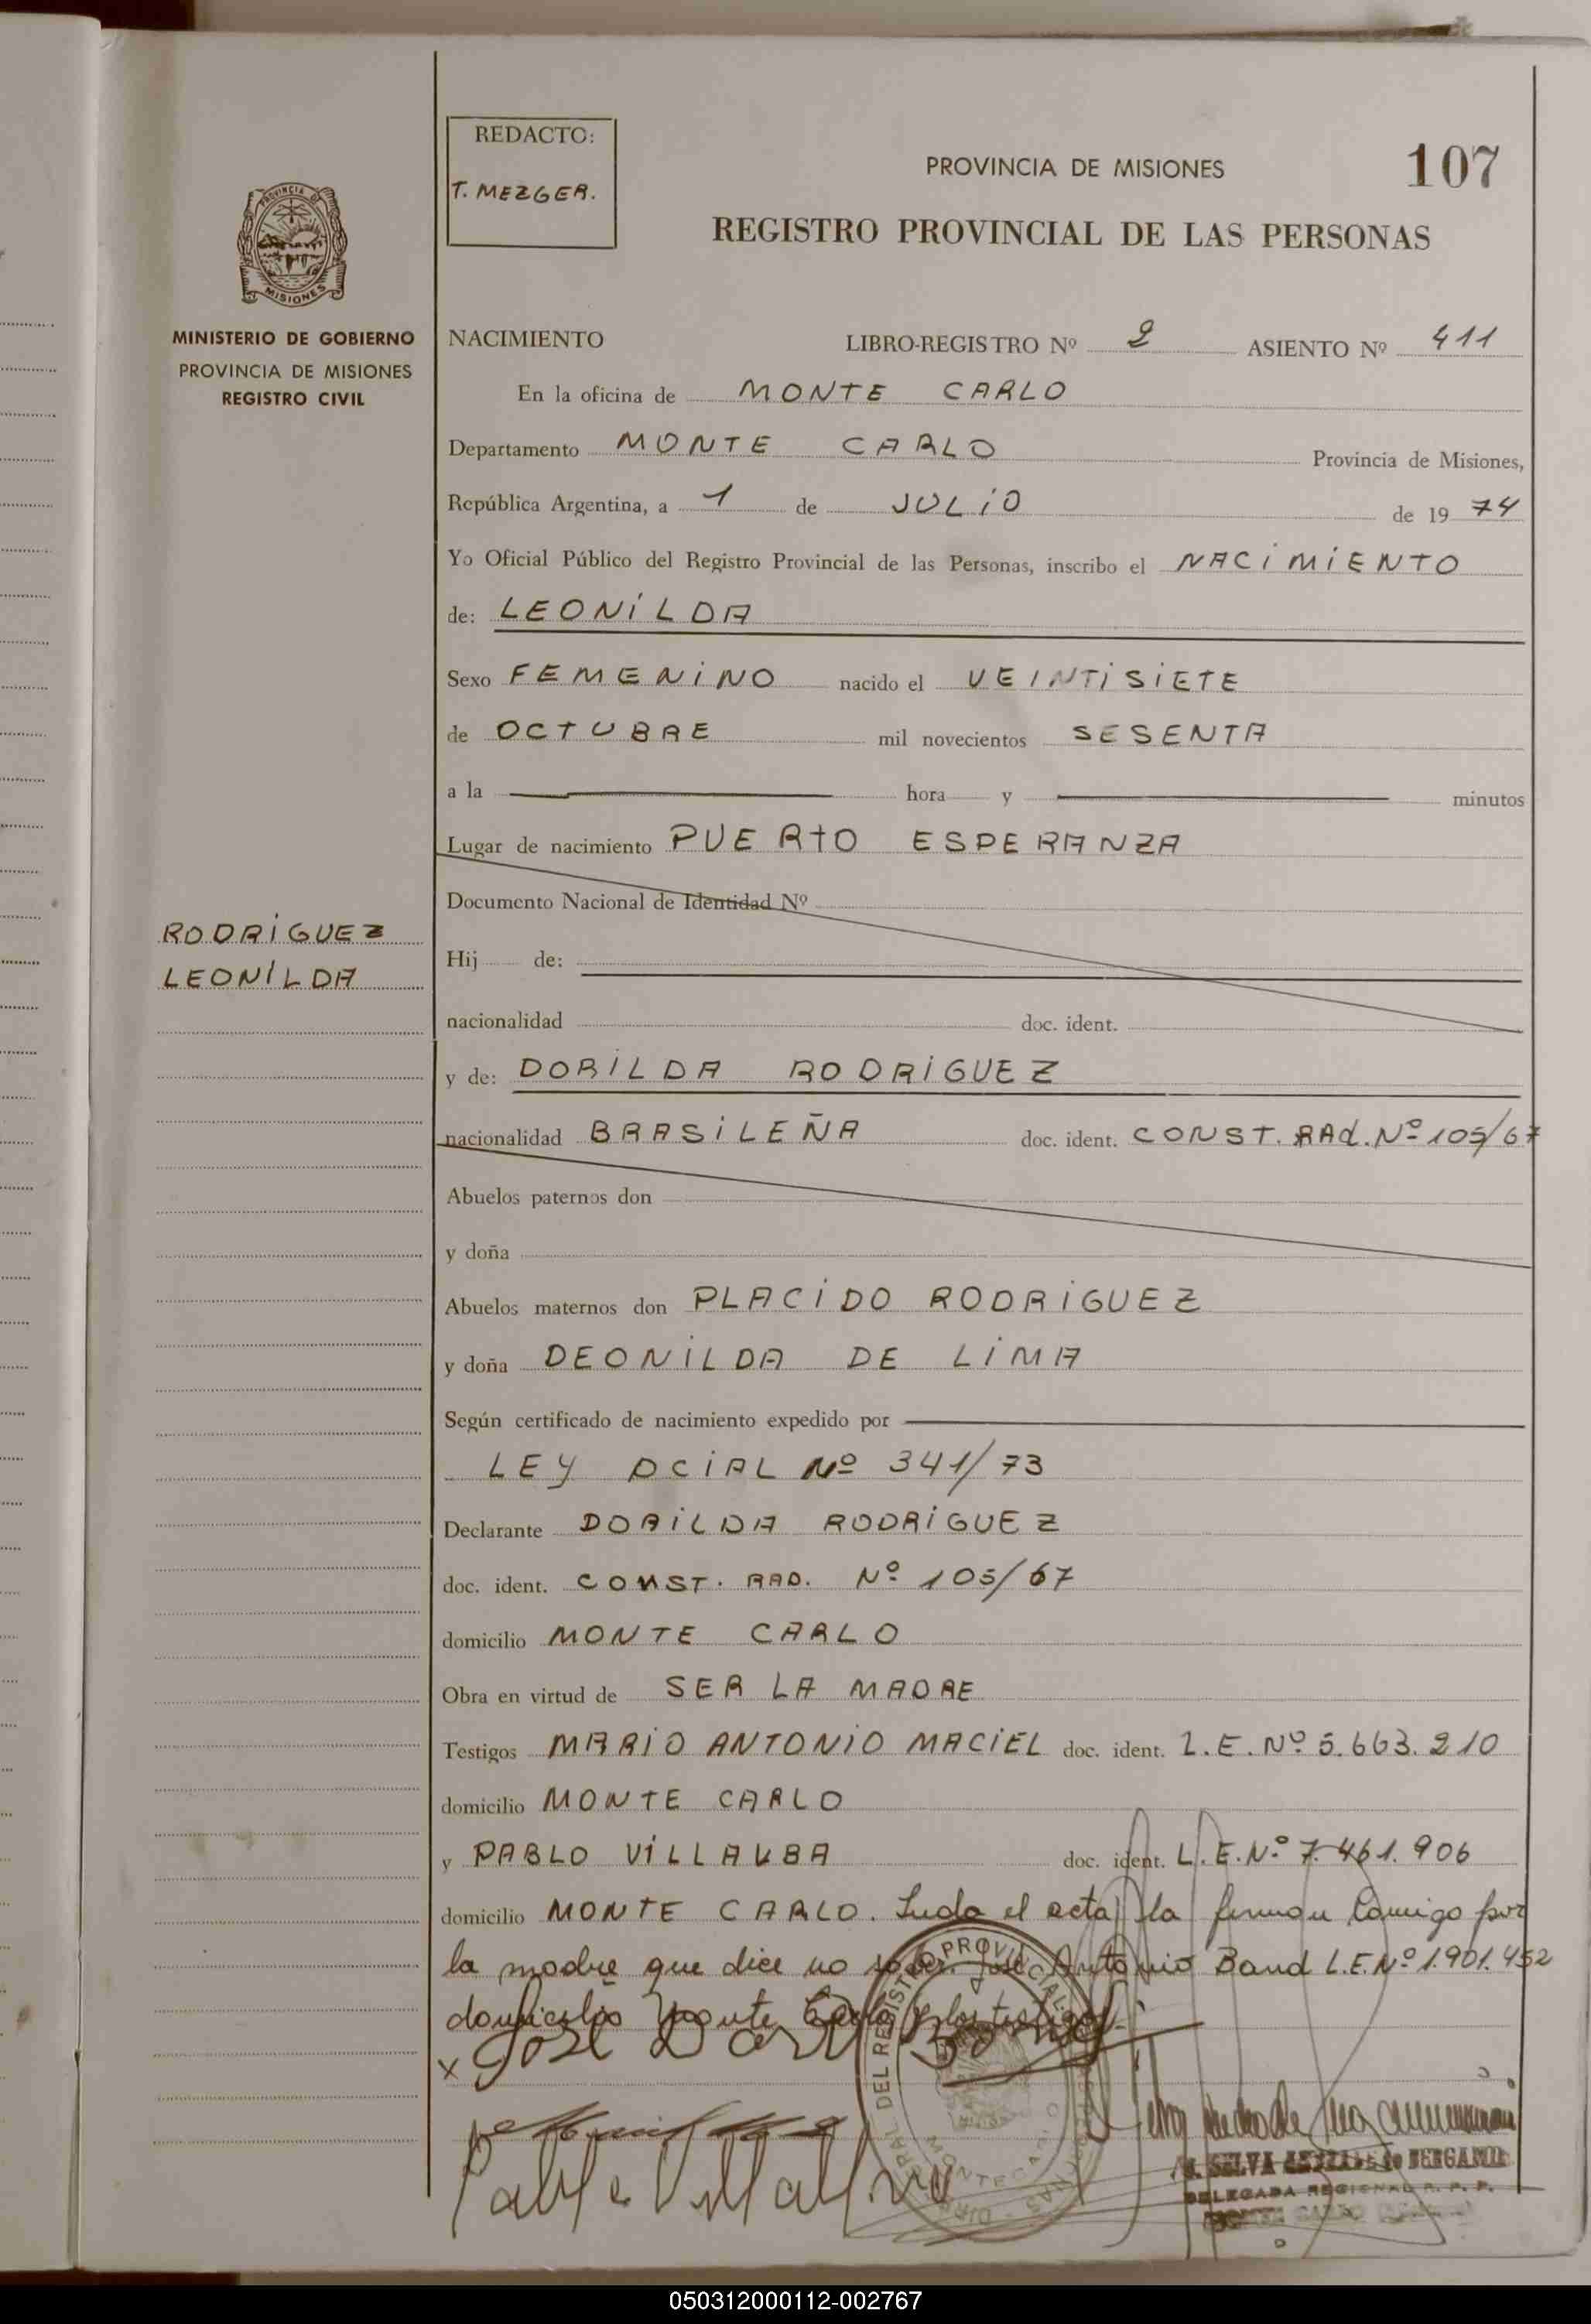 REDACTO:
T. MEZGER.
PROVINCIA DE MISIONES
107
REGISTRO PROVINCIAL DE LAS PERSONAS
PROVINCIA
MISIONES
MINISTERIO DE GOBIERNO
PROVINCIA DE MISIONES
REGISTRO CIVIL
RODRIGUEZ
LEONILDA
NACIMIENTO LIBRO-REGISTRO Nº 2 ASIENTO Nº 411
En la oficina de MONTE CARLO
Departamento MONTE CARLO Provincia de Misiones,
República Argentina, a 1 de JULIO de 19 74
Yo Oficial Público del Registro Provincial de las Personas, inscribo el NACIMIENTO
de: LEONILDA
Sexo FEMENINO nacido el VEINTISIETE
de OCTUBRE mil novecientos SESENTA
a la hora y minutos
Lugar de nacimiento PUERTO ESPERANZA
Documento Nacional de Identidad Nº
Hij de:
nacionalidad doc. ident.
y de: DORILDA RODRIGUEZ
nacionalidad BRASILEÑA doc. ident. CONST. RAD. Nº 105/67
Abuelos paternos don
y doña
Abuelos maternos don PLACIDO RODRIGUEZ
y doña DEONILDA DE LIMA
Según certificado de nacimiento expedido por
LEY PCIAL Nº 341/73
Declarante DORILDA RODRIGUEZ
doc. ident. CONST. RAD. Nº 105/67
domicilio MONTE CARLO
Obra en virtud de SER LA MADRE
Testigos MARIO ANTONIO MACIEL doc. ident. L.E. Nº 5.663.210
domicilio MONTE CARLO
y PABLO VILLALBA doc. ident. L.E. Nº 7.461.906
domicilio MONTE CARLO. Leida el acta la firman conmigo por
la madre que dice no saber José Antonio Band L.E. Nº 1.901.452
domicilio Monte Carlo y los testigos.
x José
Pablo Villalba
SELVA BERGAMO
DELEGADA REGIONAL R. P. P.
050312000112-002767